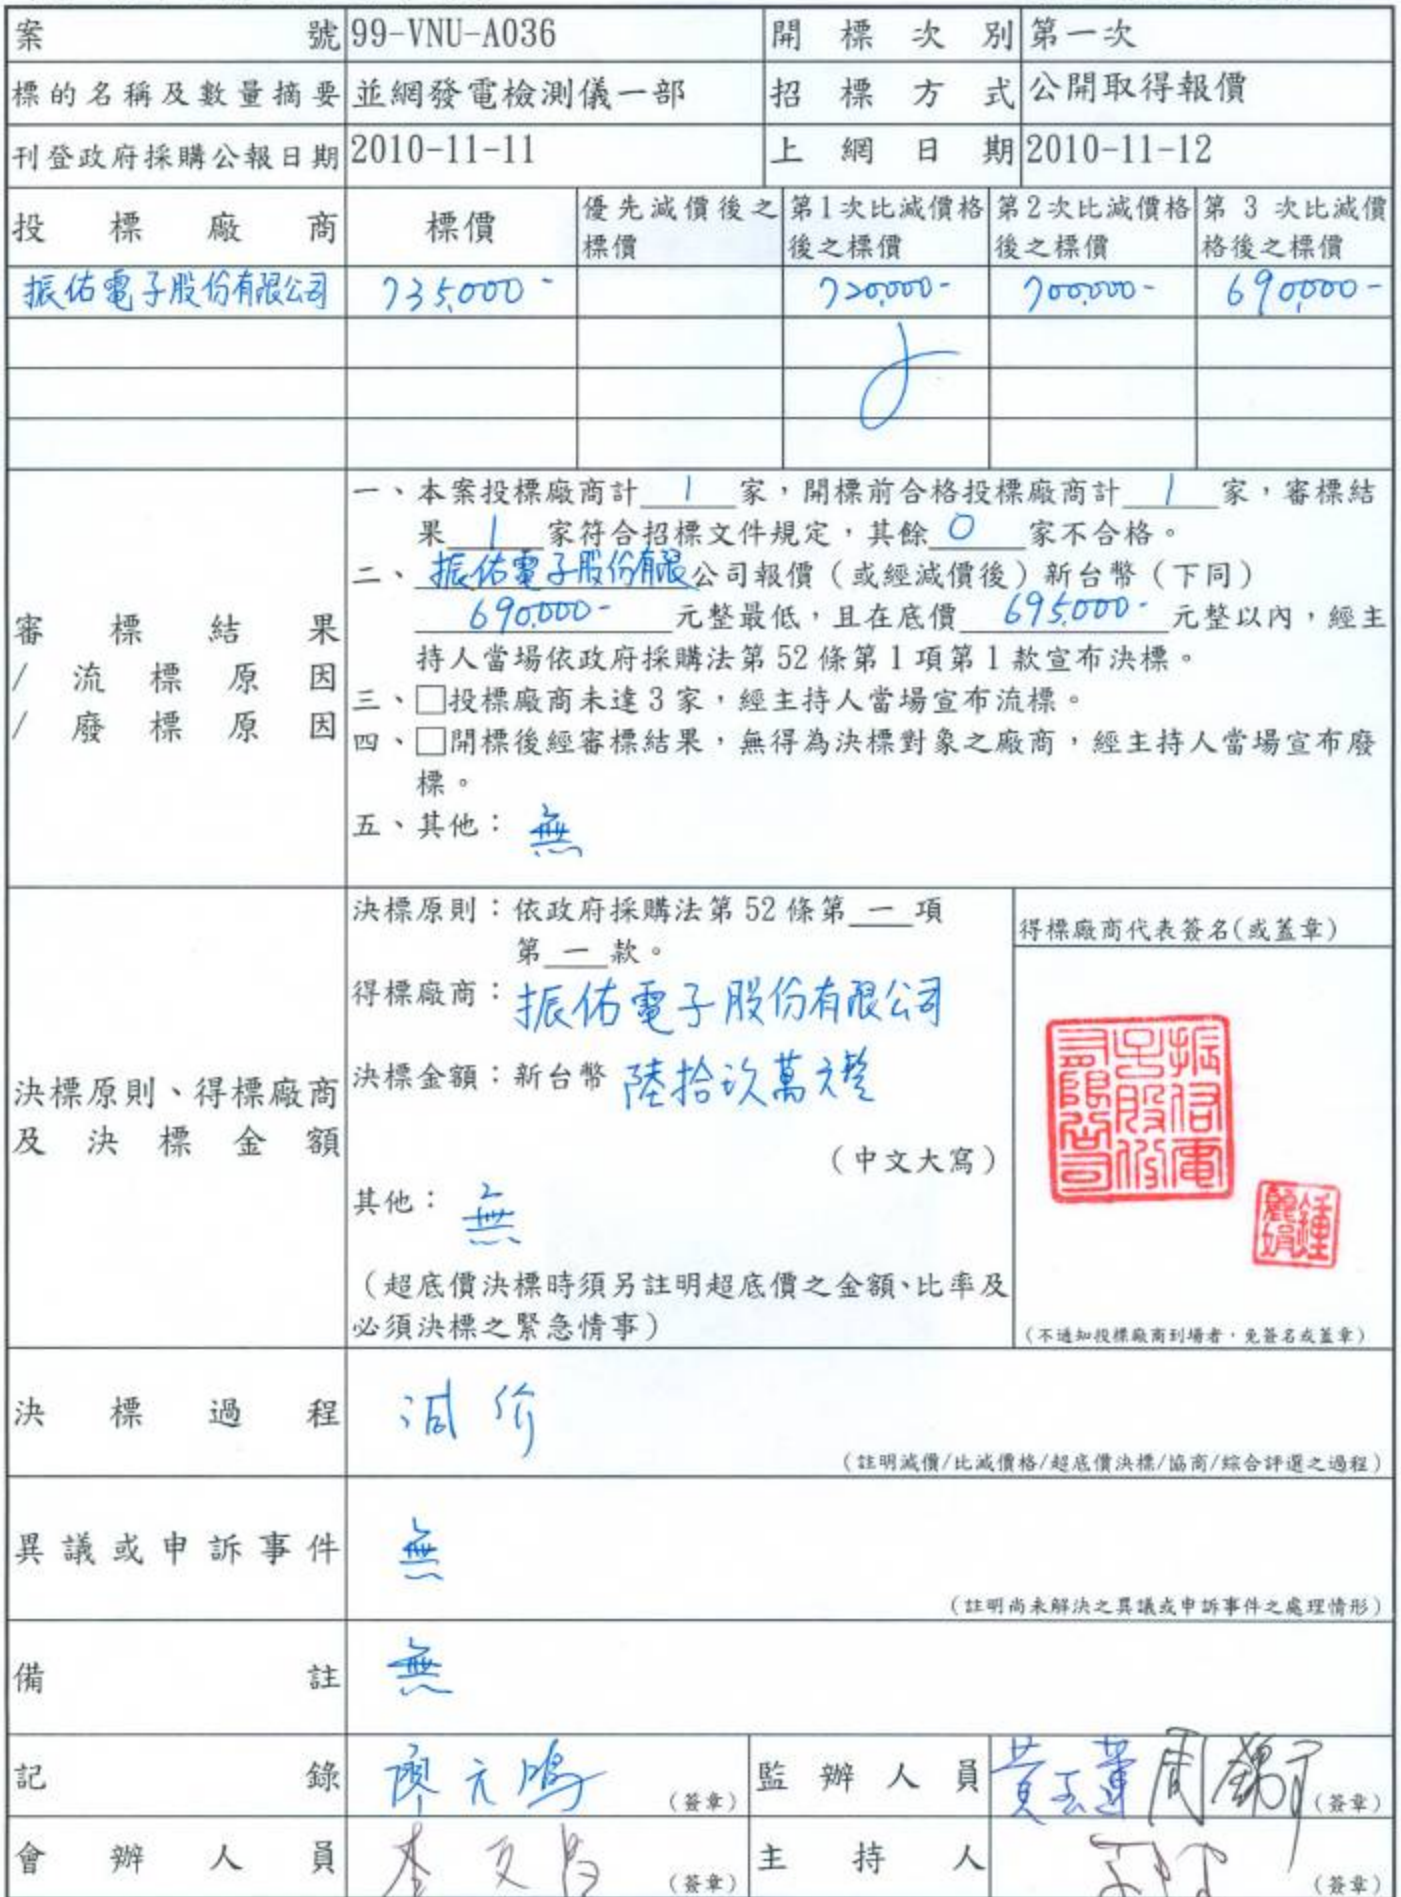 案號 99-VNU-A036 開標次別 第一次
標的名稱及數量摘要 並網發電檢測儀一部 招標方式 公開取得報價
刊登政府採購公報日期 2010-11-11 上網日期 2010-11-12
投標廠商 標價 優先減價後之標價 第1次比減價格後之標價 第2次比減價格後之標價 第3次比減價格後之標價
振佑電子股份有限公司 735,000- 720,000- 700,000- 690,000-
審標結果
/流標原因
/廢標原因
一、本案投標廠商計 1 家,開標前合格投標廠商計 1 家,審標結
果 1 家符合招標文件規定,其餘 0 家不合格。
二、振佑電子股份有限公司報價(或經減價後)新台幣(下同)
690,000- 元整最低,且在底價 695,000- 元整以內,經主
持人當場依政府採購法第52條第1項第1款宣布決標。
三、□投標廠商未達3家,經主持人當場宣布流標。
四、□開標後經審標結果,無得為決標對象之廠商,經主持人當場宣布廢
標。
五、其他:無
決標原則、得標廠商
及決標金額
決標原則:依政府採購法第52條第一項
第一款。
得標廠商:振佑電子股份有限公司
決標金額:新台幣 陸拾玖萬元整
(中文大寫)
其他:無
(超底價決標時須另註明超底價之金額、比率及
必須決標之緊急情事)
得標廠商代表簽名(或蓋章)
振佑電
子股份
有限公司
(不通知投標廠商到場者,免簽名或蓋章)
決標過程 減价
(註明減價/比減價格/超底價決標/協商/綜合評選之過程)
異議或申訴事件 無
(註明尚未解決之異議或申訴事件之處理情形)
備註 無
記錄 廖元鴻 (簽章) 監辦人員 (簽章)
會辦人員 李文昌 (簽章) 主持人 (簽章)